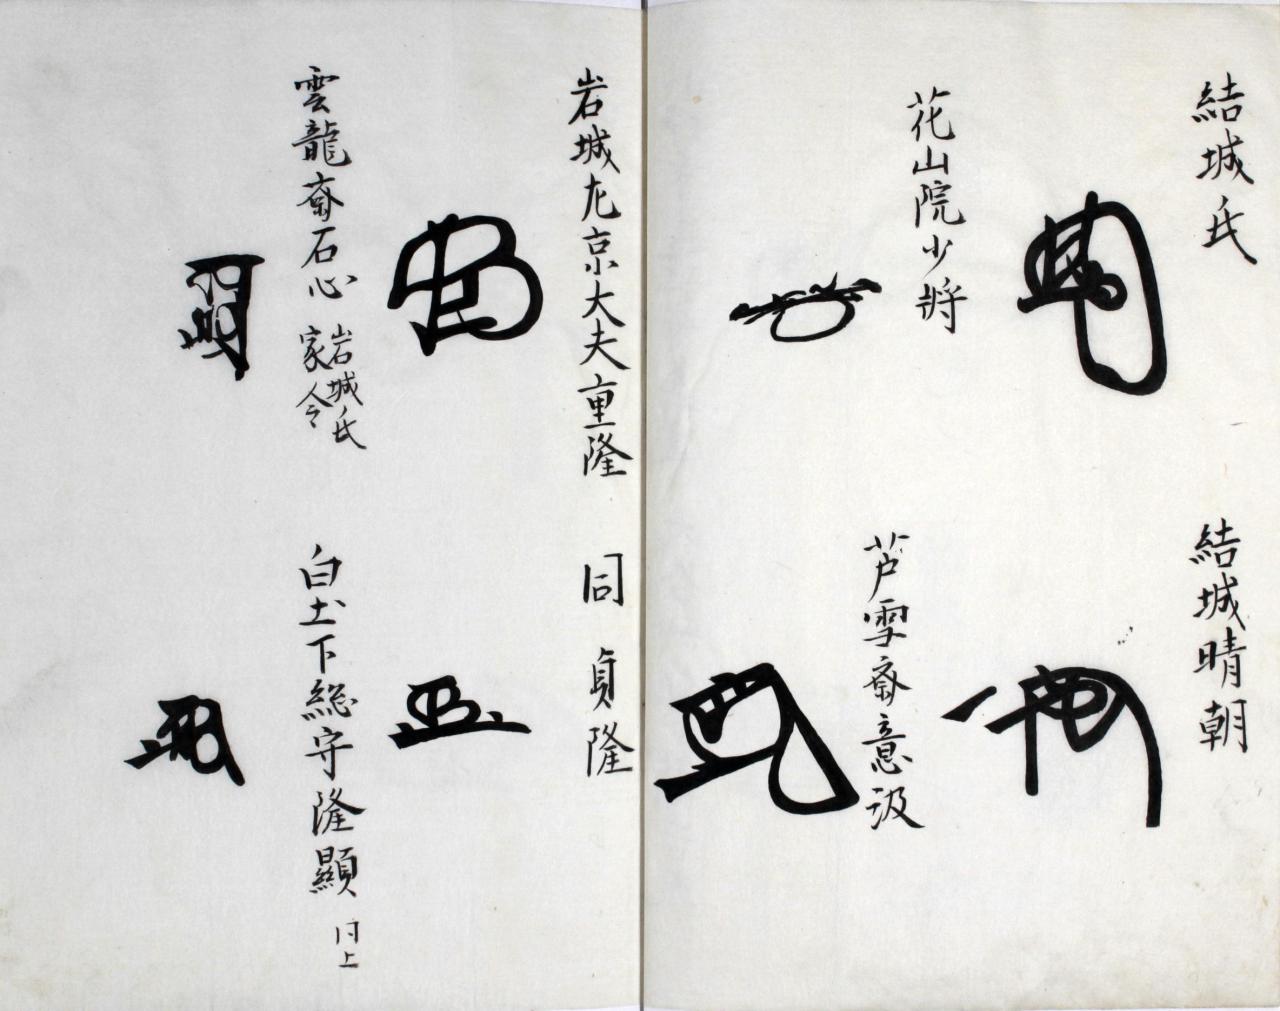 結城氏
結城晴朝
花山院少将
芦雪斎意汲
岩城左京大夫重隆
同 貞隆
雲龍斎石心 岩城氏
家令
白土下総守隆顕 同上